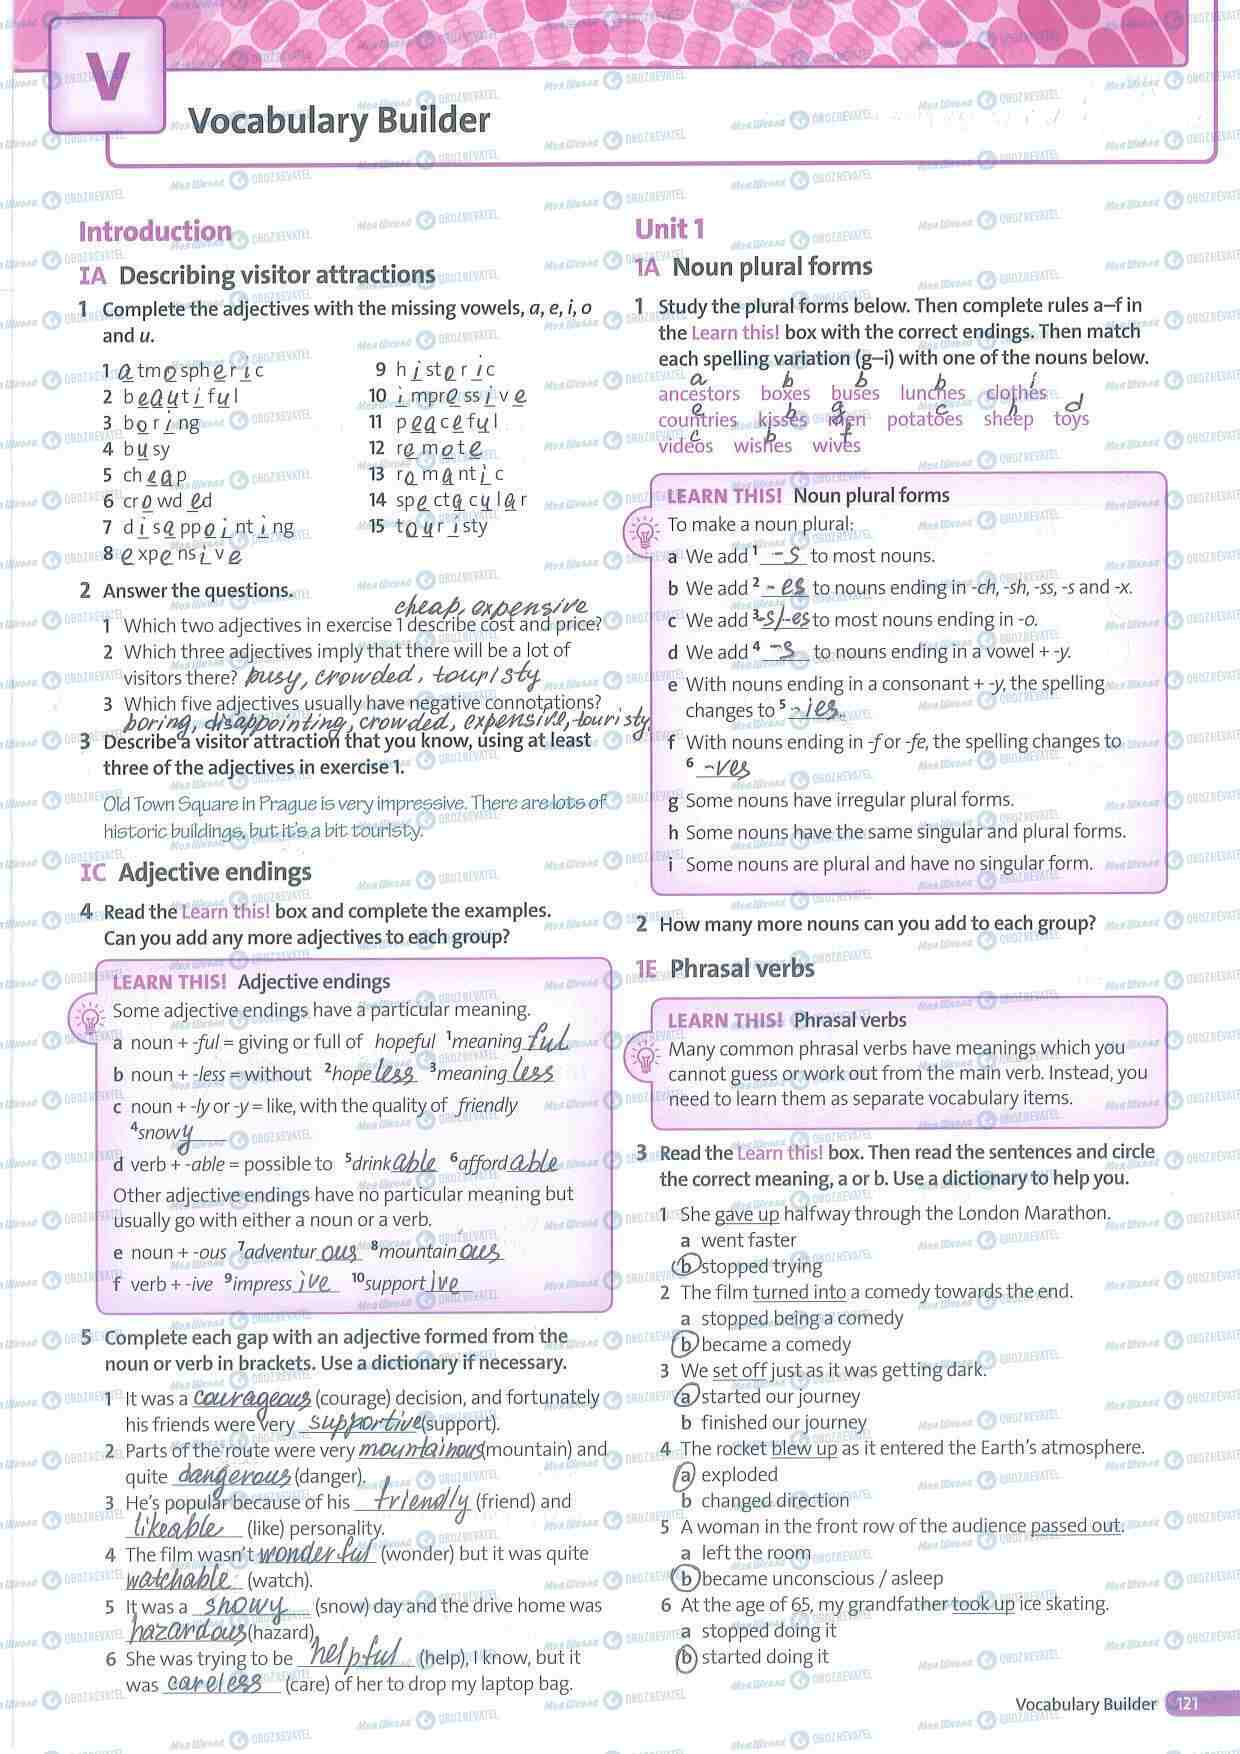 V
Vocabulary Builder
Introduction
IA Describing visitor attractions
1 Complete the adjectives with the missing vowels, a, e, i, o
and u.
1 atmospheric
2 beautiful
3 boring
4 busy
5 cheap
6 crowded
7 disappointing
8 expensive
9 historic
10 impressive
11 peaceful
12 remote
13 romantic
14 spectacular
15 touristy
2 Answer the questions.
cheap, expensive
1 Which two adjectives in exercise 1 describe cost and price?
2 Which three adjectives imply that there will be a lot of
visitors there? busy, crowded, touristy
3 Which five adjectives usually have negative connotations?
boring, disappointing, crowded, expensive, touristy
3 Describe a visitor attraction that you know, using at least
three of the adjectives in exercise 1.
Old Town Square in Prague is very impressive. There are lots of
historic buildings, but it's a bit touristy.
IC Adjective endings
4 Read the Learn this! box and complete the examples.
Can you add any more adjectives to each group?
LEARN THIS! Adjective endings
Some adjective endings have a particular meaning.
a noun + -ful = giving or full of hopeful 1meaning ful
b noun + -less = without 2hope less 3meaning less
c noun + -ly or -y = like, with the quality of friendly
4snow y
d verb + -able = possible to 5drink able 6afford able
Other adjective endings have no particular meaning but
usually go with either a noun or a verb.
e noun + -ous 7adventur ous 8mountain ous
f verb + -ive 9impress ive 10support ive
5 Complete each gap with an adjective formed from the
noun or verb in brackets. Use a dictionary if necessary.
1 It was a courageous (courage) decision, and fortunately
his friends were very supportive (support).
2 Parts of the route were very mountainous (mountain) and
quite dangerous (danger).
3 He's popular because of his friendly (friend) and
likeable (like) personality.
4 The film wasn't wonderful (wonder) but it was quite
watchable (watch).
5 It was a snowy (snow) day and the drive home was
hazardous (hazard).
6 She was trying to be helpful (help), I know, but it
was careless (care) of her to drop my laptop bag.
Unit 1
1A Noun plural forms
1 Study the plural forms below. Then complete rules a–f in
the Learn this! box with the correct endings. Then match
each spelling variation (g–i) with one of the nouns below.
a b b b i
ancestors boxes buses lunches clothes
e b g c h d
countries kisses men potatoes sheep toys
c b f
videos wishes wives
LEARN THIS! Noun plural forms
To make a noun plural:
a We add 1 -s to most nouns.
b We add 2 -es to nouns ending in -ch, -sh, -ss, -s and -x.
c We add 3 -s/-es to most nouns ending in -o.
d We add 4 -s to nouns ending in a vowel + -y.
e With nouns ending in a consonant + -y, the spelling
changes to 5 -ies.
f With nouns ending in -f or -fe, the spelling changes to
6 -ves
g Some nouns have irregular plural forms.
h Some nouns have the same singular and plural forms.
i Some nouns are plural and have no singular form.
2 How many more nouns can you add to each group?
1E Phrasal verbs
LEARN THIS! Phrasal verbs
Many common phrasal verbs have meanings which you
cannot guess or work out from the main verb. Instead, you
need to learn them as separate vocabulary items.
3 Read the Learn this! box. Then read the sentences and circle
the correct meaning, a or b. Use a dictionary to help you.
1 She gave up halfway through the London Marathon.
a went faster
b stopped trying
2 The film turned into a comedy towards the end.
a stopped being a comedy
b became a comedy
3 We set off just as it was getting dark.
a started our journey
b finished our journey
4 The rocket blew up as it entered the Earth's atmosphere.
a exploded
b changed direction
5 A woman in the front row of the audience passed out.
a left the room
b became unconscious / asleep
6 At the age of 65, my grandfather took up ice skating.
a stopped doing it
b started doing it
Vocabulary Builder 121